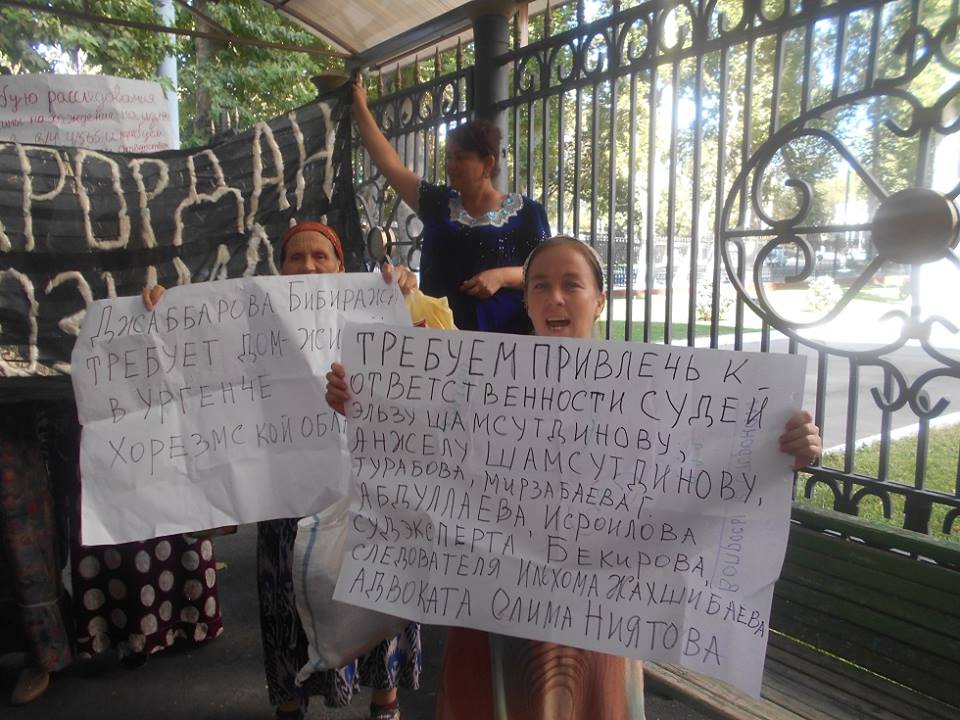 бую расследования
на хождение на
в/ч 41565 и требуем
РОРДАН
ДЖАББАРОВА БИБИРАЖА
ТРЕБУЕТ ДОМ-ЖИ
В УРГЕНЧЕ
ХОРЕЗМСКОЙ ОБЛ
ТРЕБУЕМ ПРИВЛЕЧЬ К
ОТВЕТСТВЕННОСТИ СУДЕЙ
ЭЛЬЗУ ШАМСУТДИНОВУ,
АНЖЕЛУ ШАМСУТДИНОВУ,
ТУРАБОВА, МИРЗАБАЕВА Г.
АБДУЛЛАЕВА, ИСРОИЛОВА
СУДЭКСПЕРТА БЕКИРОВА,
СЛЕДОВАТЕЛЯ ИЛЬХОМА ЖАХШИБАЕВА
АДВОКАТА ОЛИМА НИЯТОВА